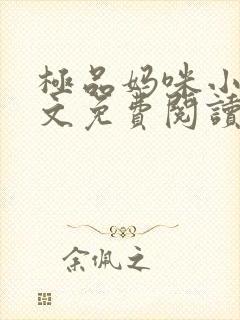 極品妈咪小
文免費閱讀
余佩之